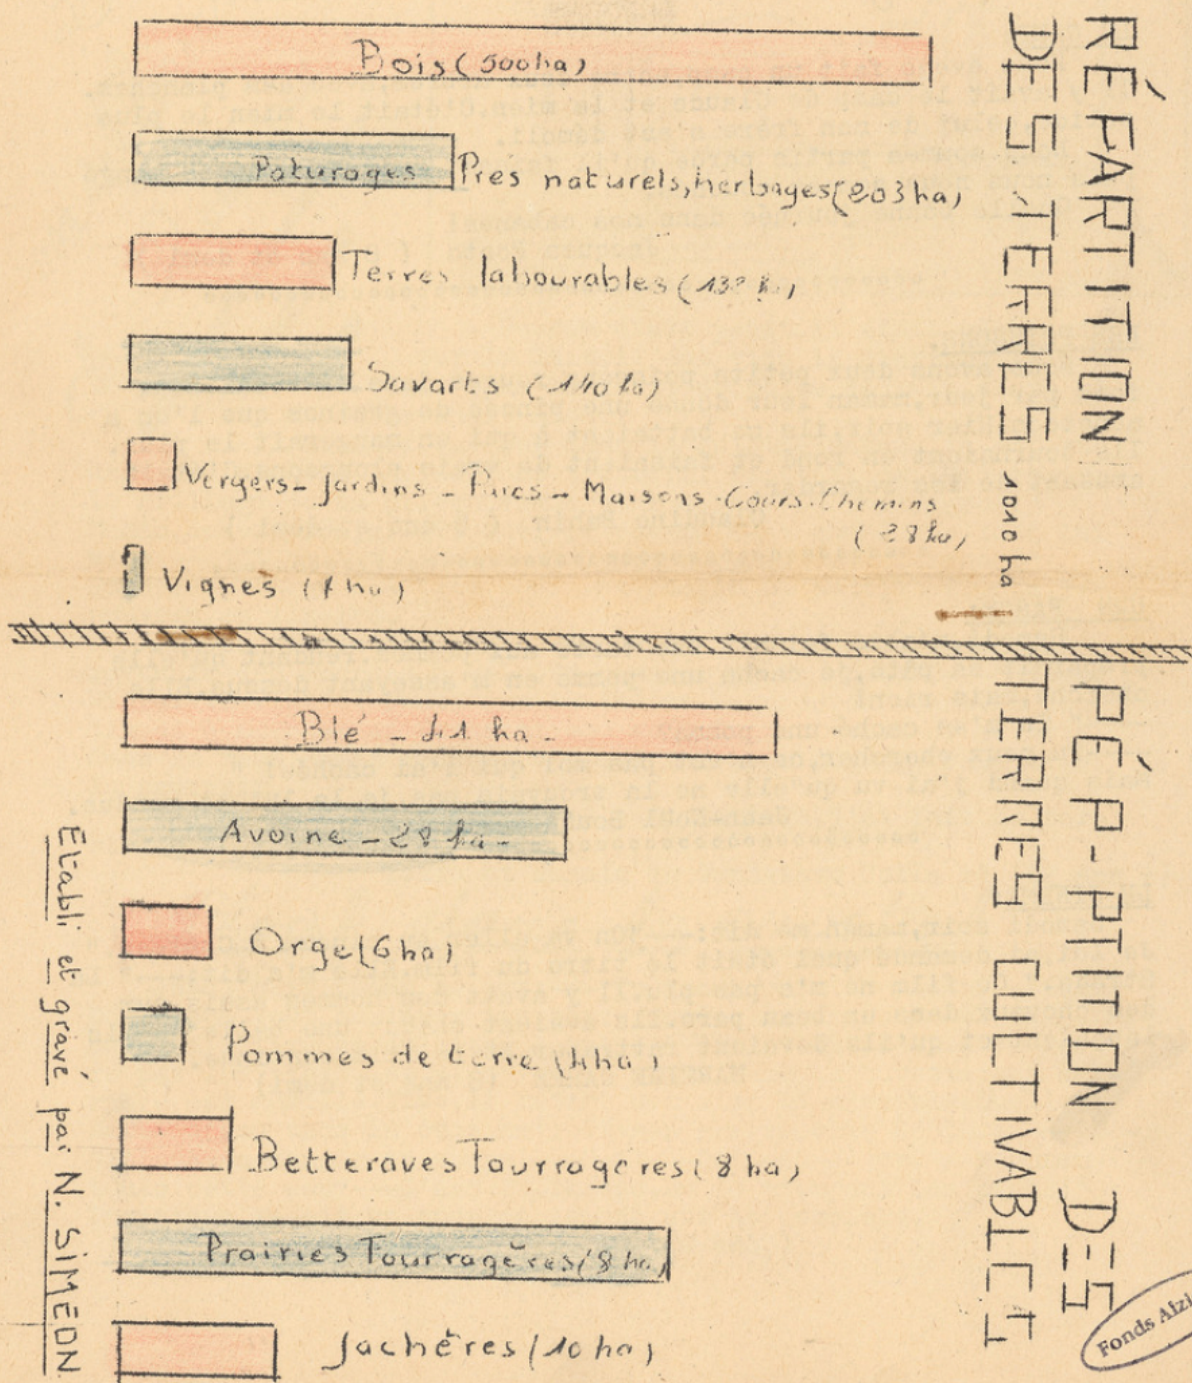 RÉPARTITION
DES TERRES 1010 ha
Bois (500ha)
Paturages Près naturels, herbages (203 ha)
Terres labourables (132 h)
Savarts (140 ha)
Vergers - Jardins - Parcs - Maisons - Cours - Chemins
(28 ha)
Vignes (7 ha)
RÉP-PTITION DES
TERRES CULTIVABLES
Blé - 41 ha -
Avoine - 28 ha -
Orge (6 ha)
Pommes de terre (4 ha)
Betteraves Fourragères (8 ha)
Prairies Fourragères (8 ha)
Jachères (10 ha)
Etabli et gravé par N. SIMEON
Fonds Aizi